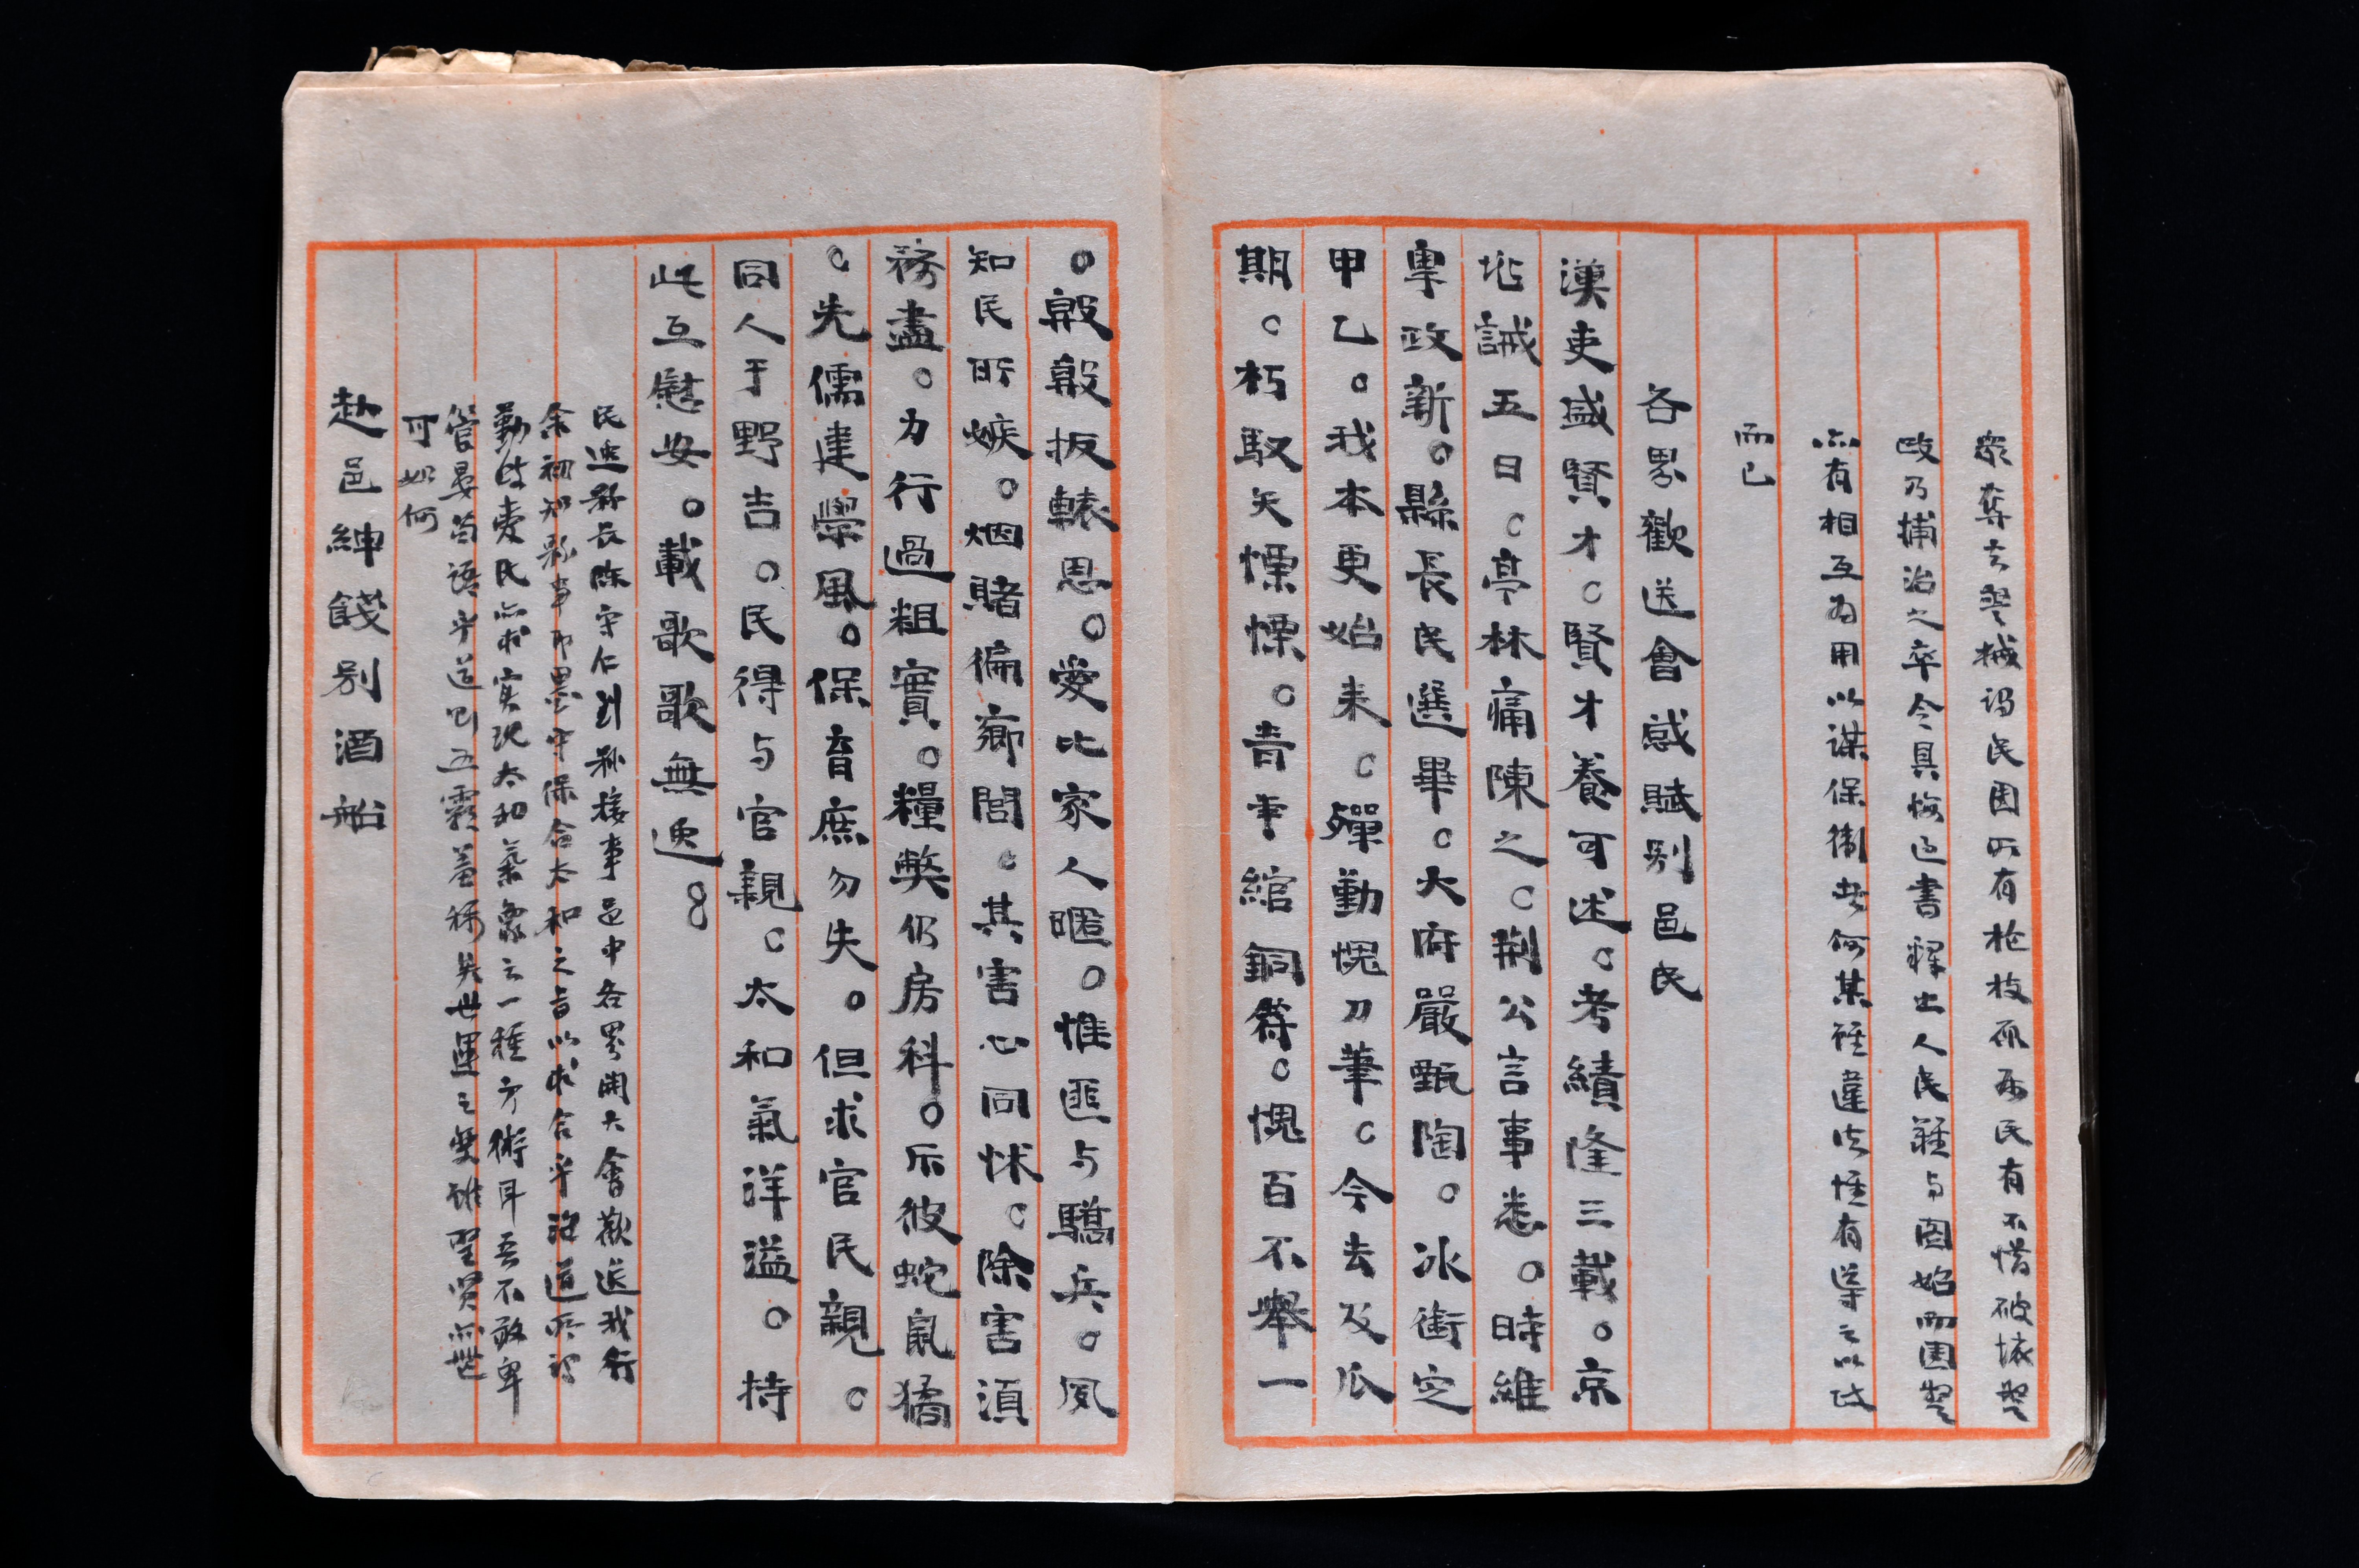 眾奪之槍械謂民團所有枪枝取而民有不惜破壞
政乃捕治之卒令具悔過書釋出人民雖与團
亦有相互為用以謀保衛者何某雖違法惟有導之以政
而已
各界歡送會感賦别邑民
漢吏盛賢才。賢才養可述。考績隆三載。京
兆誡五日。亭林痛陳之。荆公言事悉。時維
軍政新。縣長民選畢。大府嚴甄陶。冰銜定
甲乙。我本更始来。殫勤愧刀筆。今去及瓜
期。朽馭矢慄慄。青事綰銅符。愧百不舉一
。殷殷扳轅思。愛比家人暱。惟匪与驕兵。夙
知民所嫉。烟賭徧鄉閭。其害心同怵。除害須
務盡。力行過粗實。糧弊仍房科。斥彼蛇鼠獝
。先儒建學風。保育庶勿失。但求官民親。
同人于野吉。民得与官親。太和氣洋溢。持
此互慰安。載歌歌無逸。
民選縣長陳守仁到縣接事邑中各界開大會歡送我行
余初知縣事即墨守保合太和之旨以求合乎治道所謂
勤政愛民亦求實現太和氣象之一種方術耳吾不敢卑
管晏苟語乎道則五霸羞稱矣世運之變雖聖賢亦無
可如何
赴邑紳餞别酒船